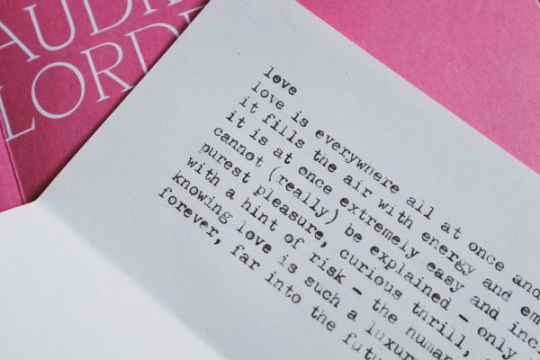 AUDR
LORD
love
love is everywhere all at once and
it fills the air with energy and em
it is at once extremely easy and inc
cannot (really) be explained - only
purest pleasure, curious thrill,
with a hint of risk - the human
knowing love is such a luxur
forever, far into the fu